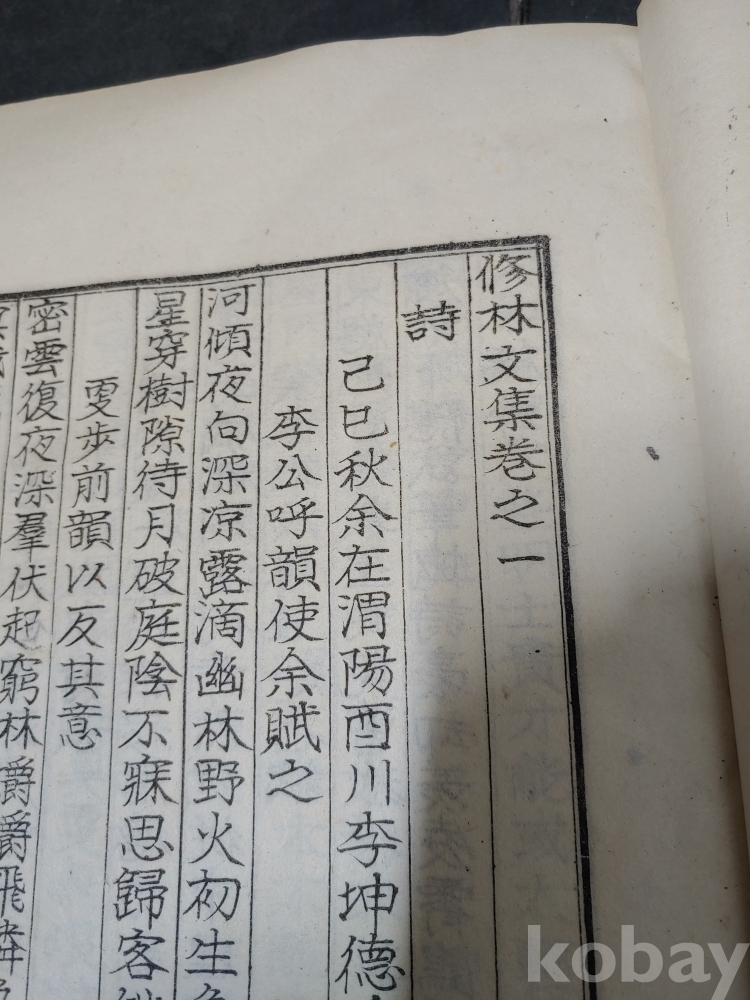 修林文集卷之一
詩
己巳秋余在渭陽酉川李坤德
李公呼韻使余賦之
河傾夜向深凉露滴幽林野火初生
星穿樹隙待月破庭陰不寐思歸客
雯步前韻以反其意
密雲復夜深羣伏起窮林爝爝飛
kobay